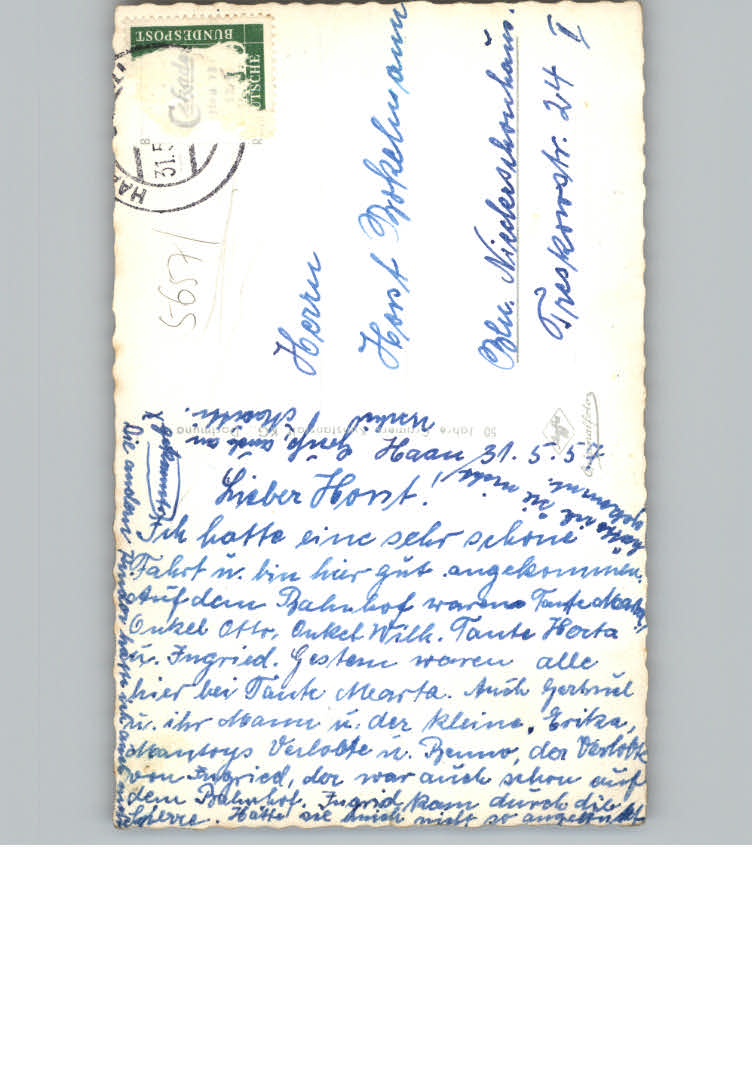 DEUTSCHE
BUNDESPOST
31.5
5657/
Herrn
Horst Bokelmann
Bln. Niederschönhaus.
Treskowstr. 24 I
50 Jahre Krumnere Kunstanstalt KG Dortmund
Agfa
Originalfoto
Haan 31.5.57
Lieber Horst!
Ich hatte eine sehr schöne
Fahrt u. bin hier gut angekommen.
Auf dem Bahnhof waren Tante Marta,
Onkel Otto, Onkel Wilh. Tante Herta
u. Ingried. Gestern waren alle
hier bei Tante Marta. Auch Gertrud
u. ihr Mann u. der kleine, Erika
Verlobte u. Benno, der Verlobte
von Ingried, der war auch schon auf
dem Bahnhof. Ingrid kam durch die
Sperre. Hätte sie mich nicht so
hätte ich sie nicht
Die andern Kinder